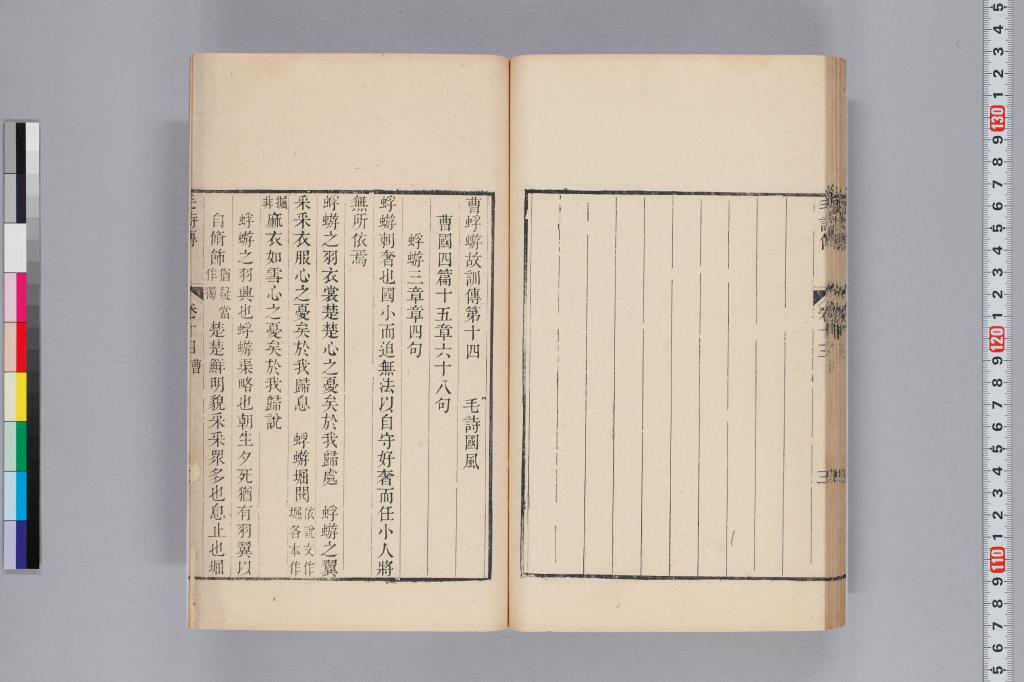 三
曹蜉蝣故訓傳第十四　毛詩國風
曹國四篇十五章六十八句
蜉蝣三章章四句
蜉蝣刺奢也國小而迫無法以自守好奢而任小人將
無所依焉
蜉蝣之羽衣裳楚楚心之憂矣於我歸處　蜉蝣之翼
采采衣服心之憂矣於我歸息　蜉蝣堀閱依說文作堀各本作
掘非麻衣如雪心之憂矣於我歸說
蜉蝣之羽興也蜉蝣渠略也朝生夕死猶有羽翼以
自脩飾猶疑當作獨楚楚鮮明貌采采眾多也息止也堀
毛詩傳　卷十四曹
5 4 3 2 1 130 9 8 7 6 5 4 3 2 1 120 9 8 7 6 5 4 3 2 1 110 9 8 7 6 5